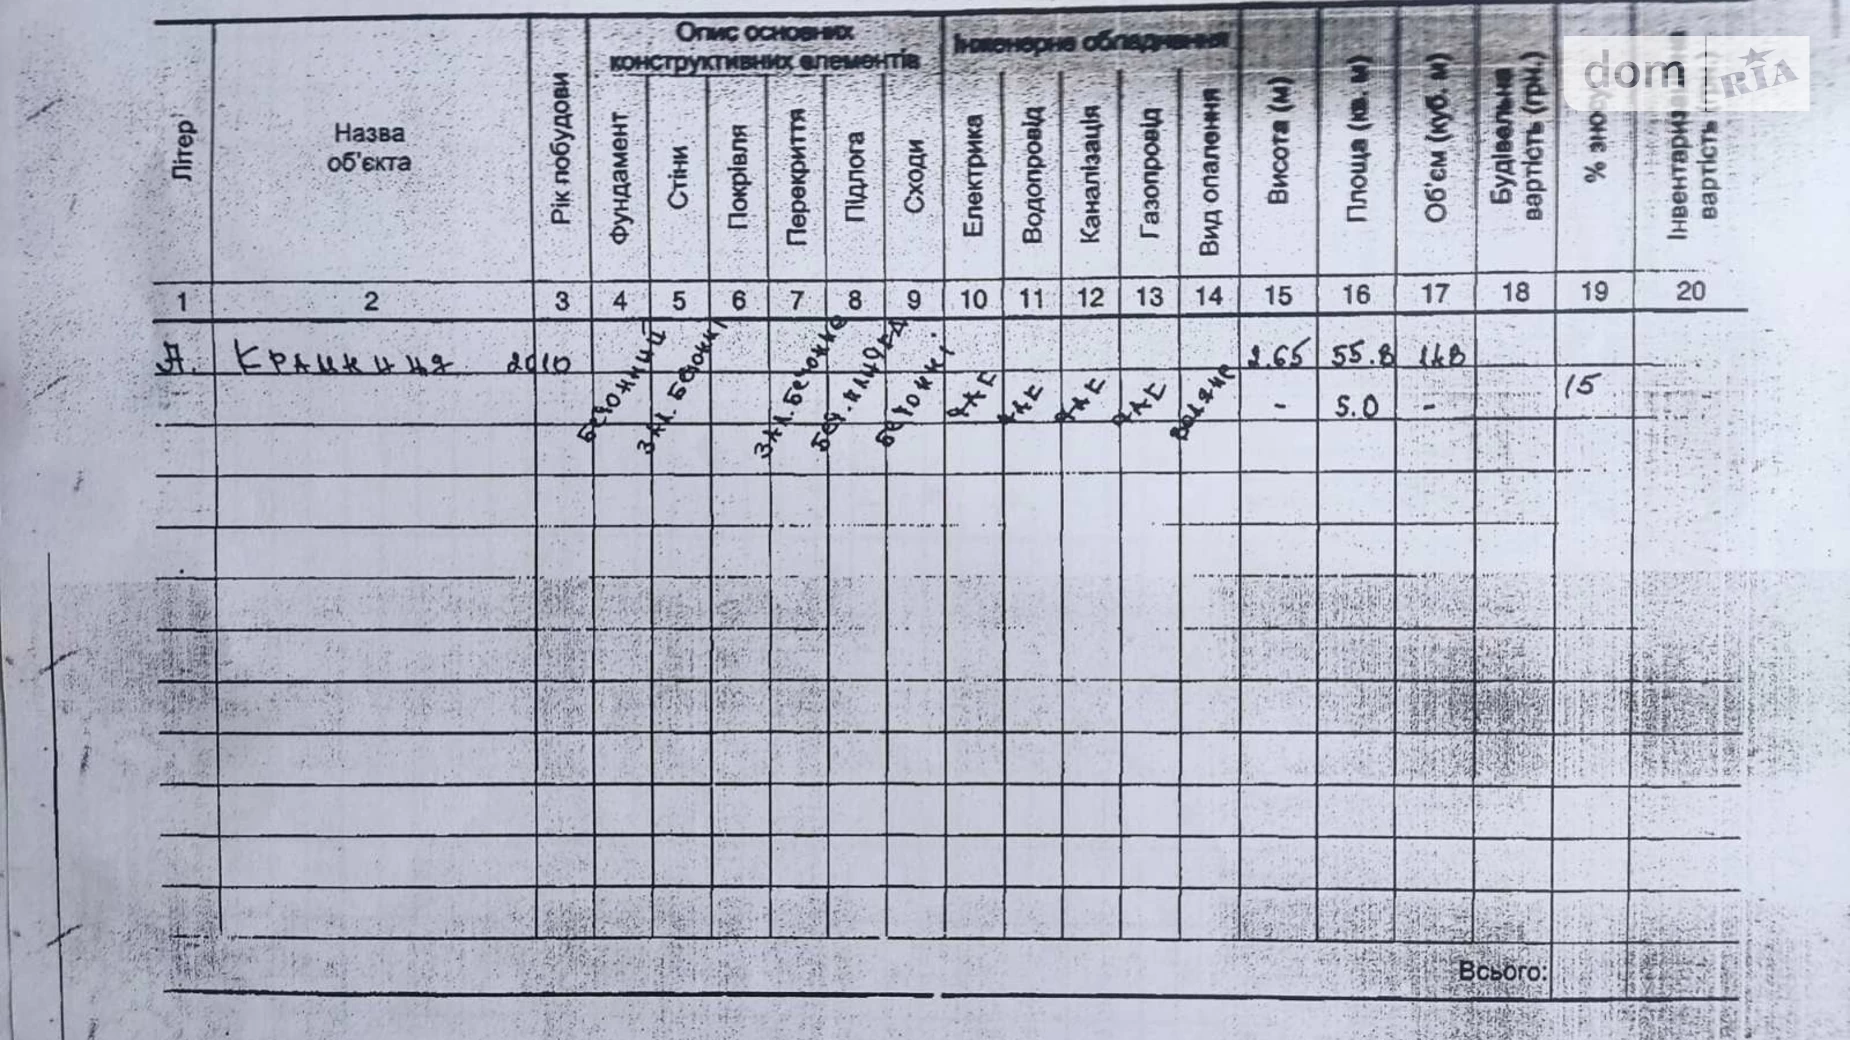 Опис основних
конструктивних елементів
Інженерне обладнення
dom RIA
Літер
Назва
об'єкта
Рік побудови
Фундамент
Стіни
Покрівля
Перекриття
Підлога
Сходи
Електрика
Водопровід
Каналізація
Газопровід
Вид опалення
Висота (м)
Площа (кв. м)
Об'єм (куб. м)
Будівельна
вартість (грн.)
% зносу
вартість
1 2 3 4 5 6 7 8 9 10 11 12 13 14 15 16 17 18 19 20
А. Крамниця 2010 Бетонний Зал. Бетонні Бетонні 2.65 55.8 148
- 5.0 - 15
Всього: